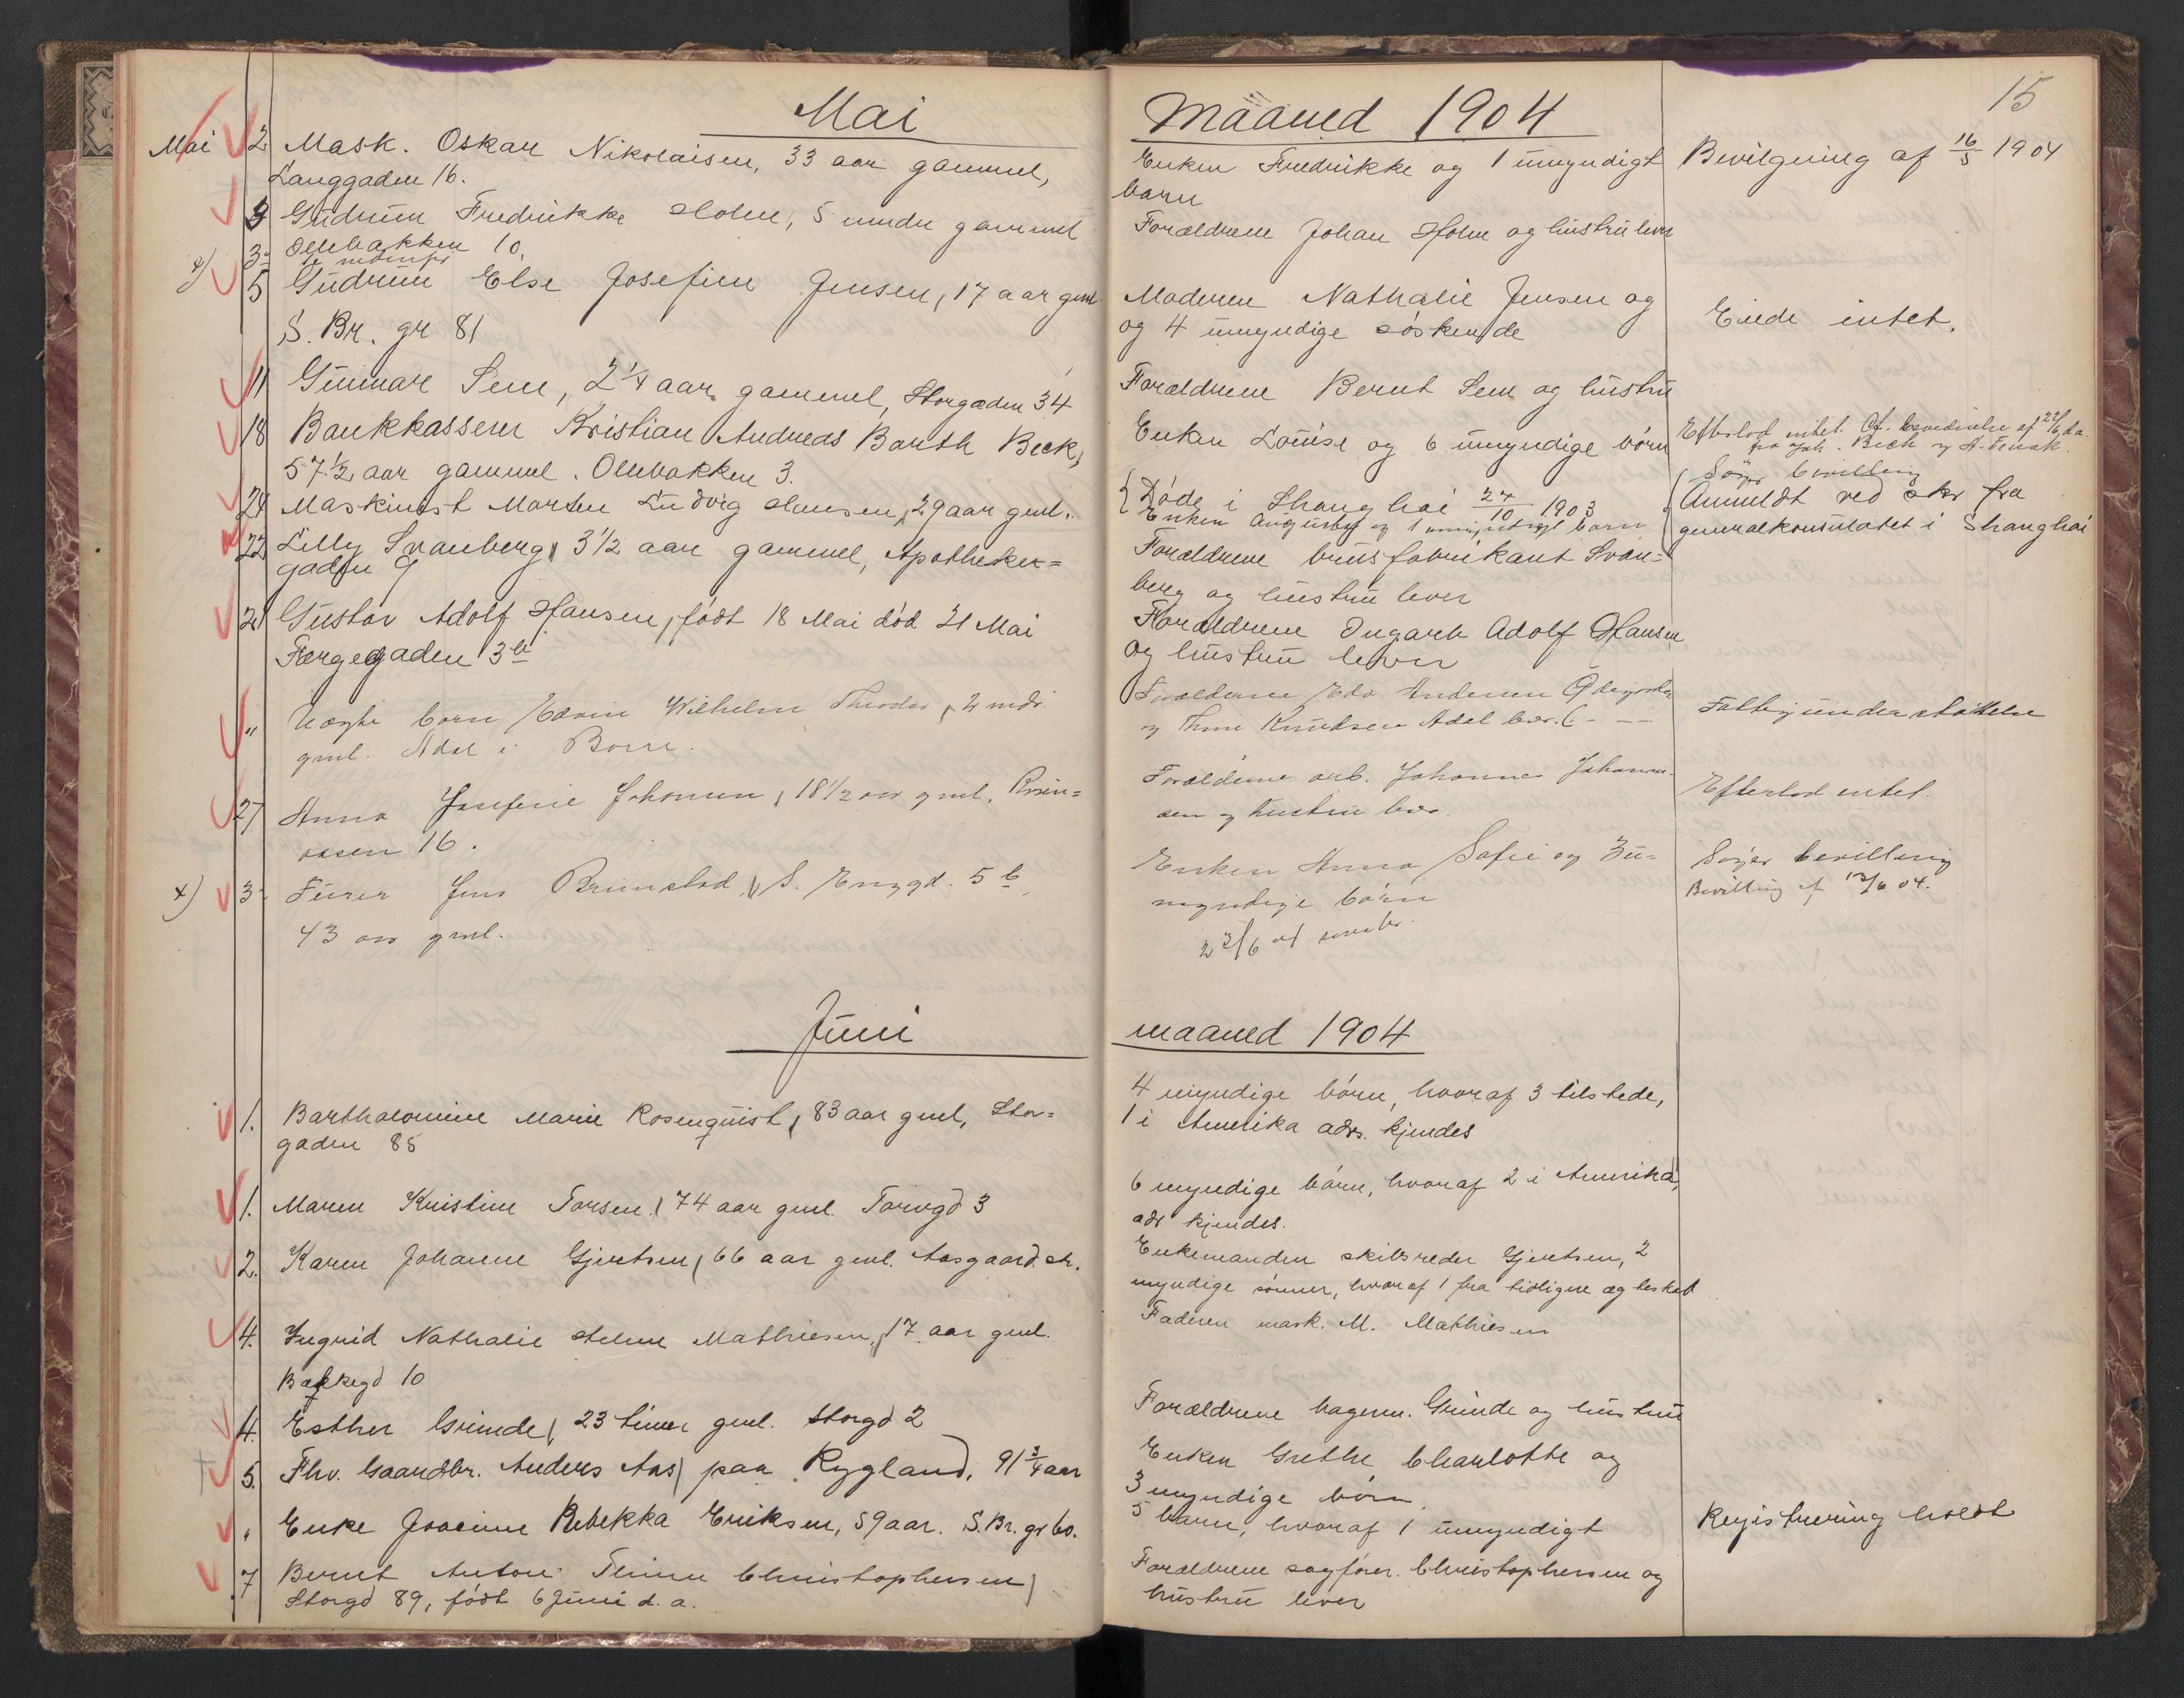 Mai
Mai 2 Mask. Oskar Nikolaisen, 33 aar gammel,
Langgaden 16.
3 Gudrun Fredrikke Holm, 5 mndr gammel
Ollebakken 10,
3
5 Gudrun Else Josefine Jensen, 17 aar gml
S. Br. gr 81
11 Gunnar Sem, 2 1/4 aar gammel, Storgaden 34
18 Bankkasserer Kristian Andreas Barth Beck,
57 1/2 aar gammel. Ollebakken 3.
24 Maskinist Morten Ludvig Hansen, 29 aar gml.
22 Lilly Svanberg, 3 1/2 aar gammel, Apotheker=
gaden 9
21 Gustav Adolf Hansen, født 18 Mai død 21 Mai
Færgegaden 3 b
" Uægte barn Edvin Wilhelm Theodor, 2 mdr.
gml. Adal i Borre.
27 Anna Josefine Johansen, 18 1/2 aar gml, Rosen=
aasen 16.
x) 3 Furer Jens Brimstad, S. Enggd. 5 b,
43 aar gml.
Juni
1. Bartholomine Marie Rosenquist, 83 aar gml, Stor=
gaden 85
1. Maren Kristine Torsen, 74 aar gml. Torvgd 3
2. Karen Johanne Gjertsen, 66 aar gml. Aasgaard. str.
4. Ingrid Nathalie Helene Mathiesen, 17 aar gml.
Bakkegd 10
4. Esther Grinde, 23 timer gml. Storgd 2
5. Fhv. Gaardbr. Anders Aas, paa Rygland, 91 3/4 aar
" Enke Joacime Rebekka Eriksen, 59 aar. S. Br. gr 60.
7 Bernt Anton Christophersen,
Storgd 89, født 6 Juni d. a.
Maaned 1904
15
Enken Fredrikke og 1 umyndigt
barn
Bevilgning af 16/5 1904
Forældrene Johan Holm og hustru lever
Moderen Nathalie Jensen og
og 4 umyndige søskende
Eiede intet.
Forældrene Bernt Sem og hustru
Enken Louise og 6 umyndige børn
Efterlod intet. Cf.
Beck og
Søger bevilling
Døde i Shanghai 24/10 1903
Enken Augusta og 1 umyndigt barn
Anmeldt ved skr fra
generalkonsulatet i Shanghai
Forældrene brusfabrikant Svan=
berg og hustru lever
Forældrene Adolf Hansen
og hustru lever
Forældrene Andersen
og Knudsen Adal
Fattigunderstøttelse
Forældrene arb. Johannes Johann=
sen og hustru lever.
Efterlod intet.
Enken Anna Sofie og 3 u=
myndige børn
23/6 04
Søger bevilling
Bevilling af 13/6 04.
maaned 1904
4 myndige børn, hvoraf 3 tilstede,
1 i Amerika adrs. kjendes
6 myndige børn, hvoraf 2 i Amerika,
adr kjendes.
Enkemanden skibsreder Gjertsen, 2
myndige sønner, hvoraf 1 fra tidligere ægteskab
Faderen mask. M. Mathiesen
Forældrene bagerm. Grinde og hustru
Enken Grethe Charlotte og
3 myndige børn.
5 børn, hvoraf 1 umyndigt
Registrering holdt
Forældrene sagfører. Christophersen og
hustru lever